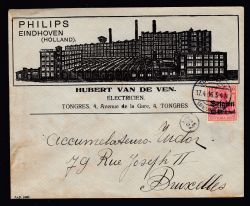 PHILIPS
EINDHOVEN
(HOLLAND).
HUBERT VAN DE VEN.
ÉLECTRICIEN.
TONGRES, 4, Avenue de la Gare, 4, TONGRES
Belgien
Accumulateurs Tudor
79 Rue Joseph II
Bruxelles